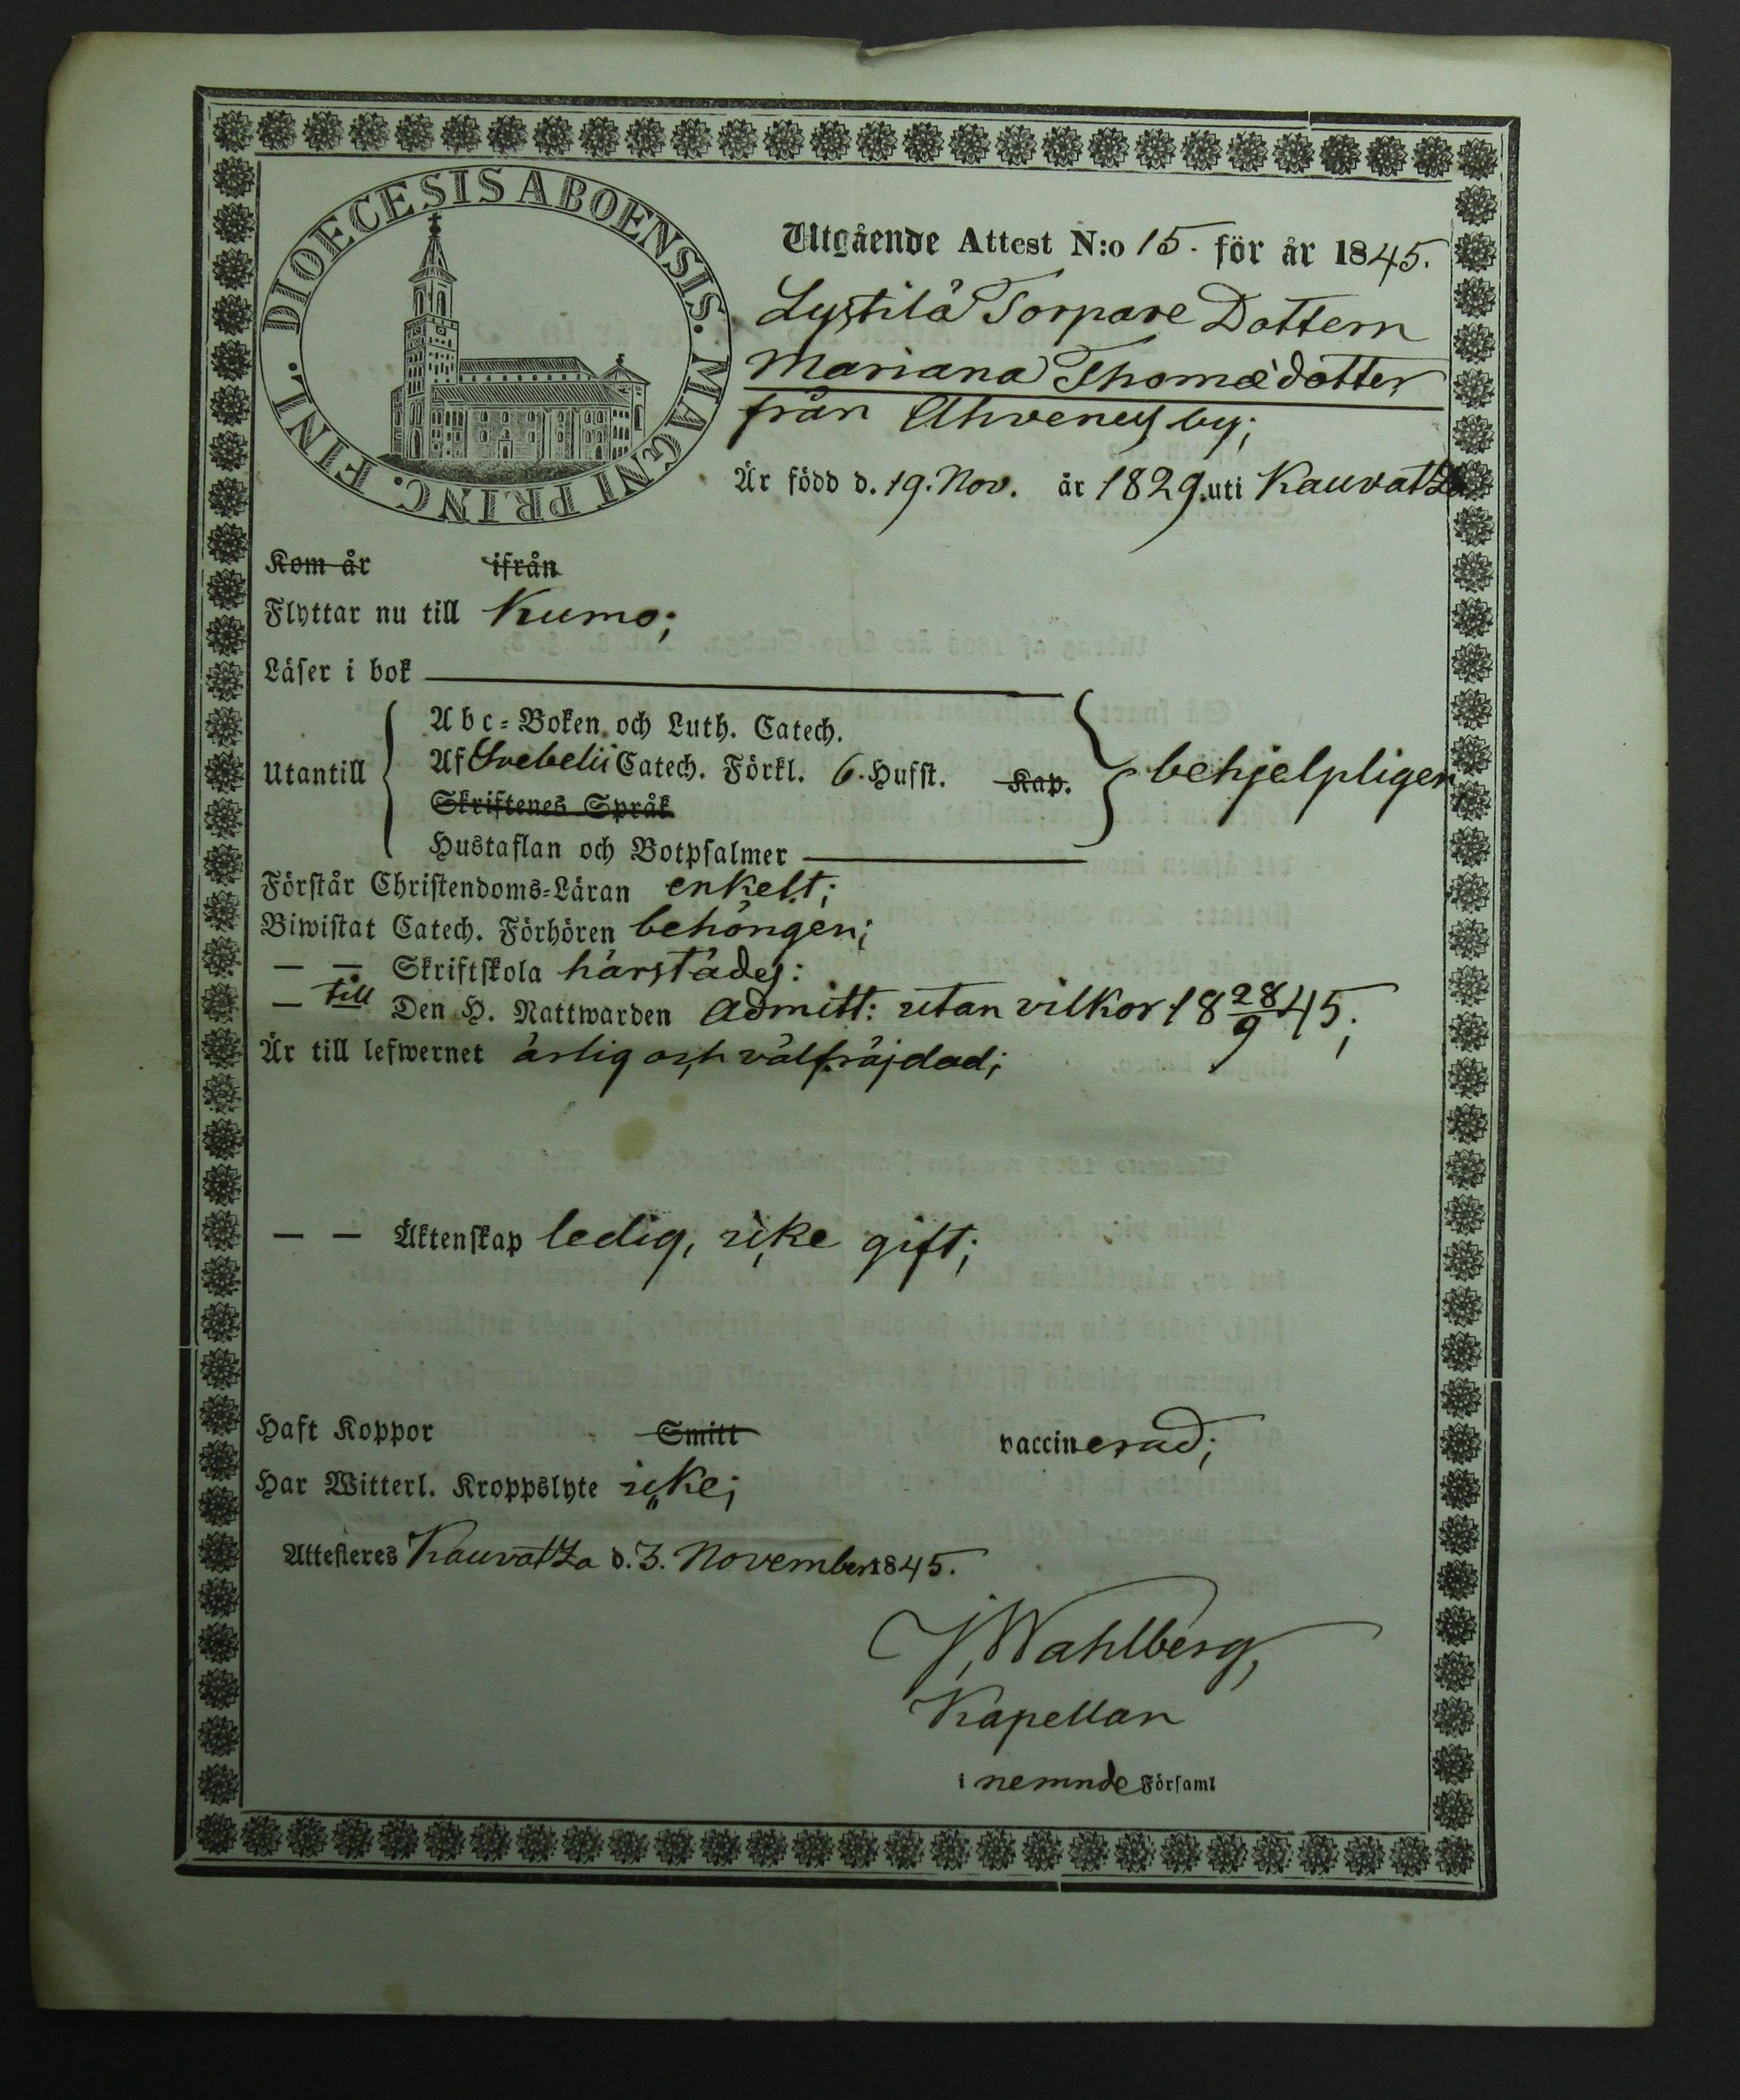 DIOECESIS ABOENSIS. MAGNI PRINC. FINL.
Utgående Attest N:o 15. för år 1845.
Lystilä Torpare Dottern
Mariana Thomædotter
från Ahvenus by;
Är född d. 19. Nov. år 1829. uti Kauvatza
Kom år ifrån
Flyttar nu till Kumo;
Läser i bok
Utantill
Abc-Boken och Luth. Catech.
Af Svebelii Catech. Förkl. 6. Hufst. Kap.
Skriftenes Språk
Hustaflan och Botpsalmer
behjelpligen,
Förstår Christendoms-Läran enkelt;
Biwistat Catech. Förhören behörigen;
— — Skriftskola härstädes:
— till Den H. Nattwarden admitt: utan vilkor 18 28/9 45;
Är till lefwernet ärlig och välfräjdad;
— — Äktenskap ledig, icke gift;
Haft Koppor Smitt vaccinerad;
Har Witterl. Kroppslyte icke;
Attesteres Kauvatza d. 3. November 1845.
J. Wahlberg,
Kapellan
i nemnde Församl